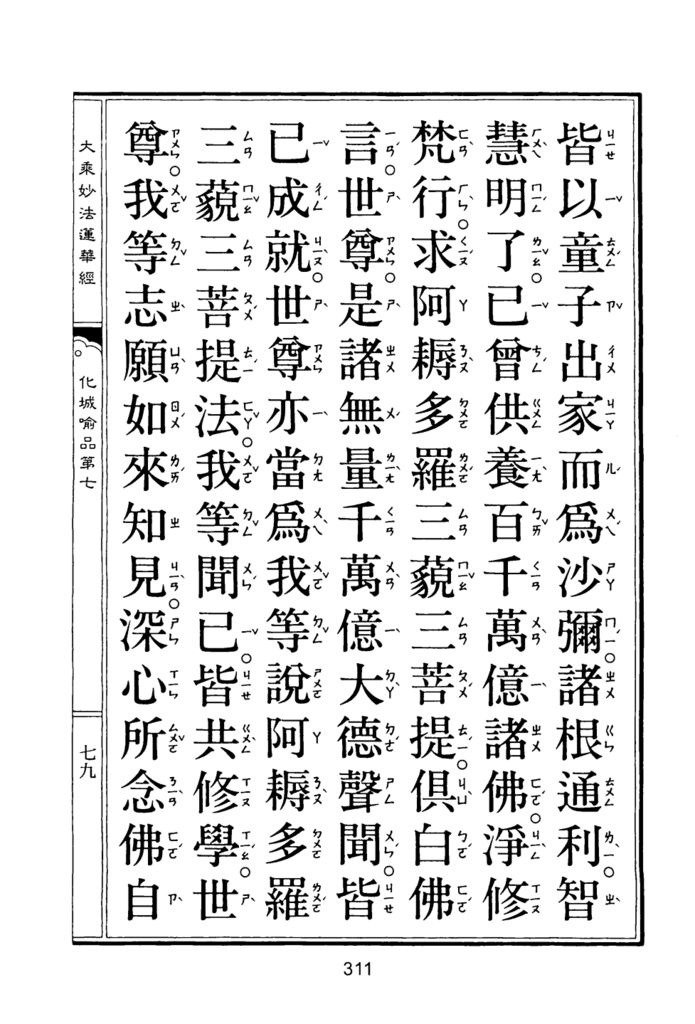 皆以童子出家而爲沙彌。諸根通利。智
慧明了。已曾供養百千萬億諸佛。淨修
梵行。求阿耨多羅三藐三菩提。俱白佛
言。世尊。是諸無量千萬億大德聲聞。皆
已成就。世尊亦當爲我等說阿耨多羅
三藐三菩提法。我等聞已。皆共修學。世
尊。我等志願如來知見。深心所念。佛自
大乘妙法蓮華經
化城喻品第七
七九
311